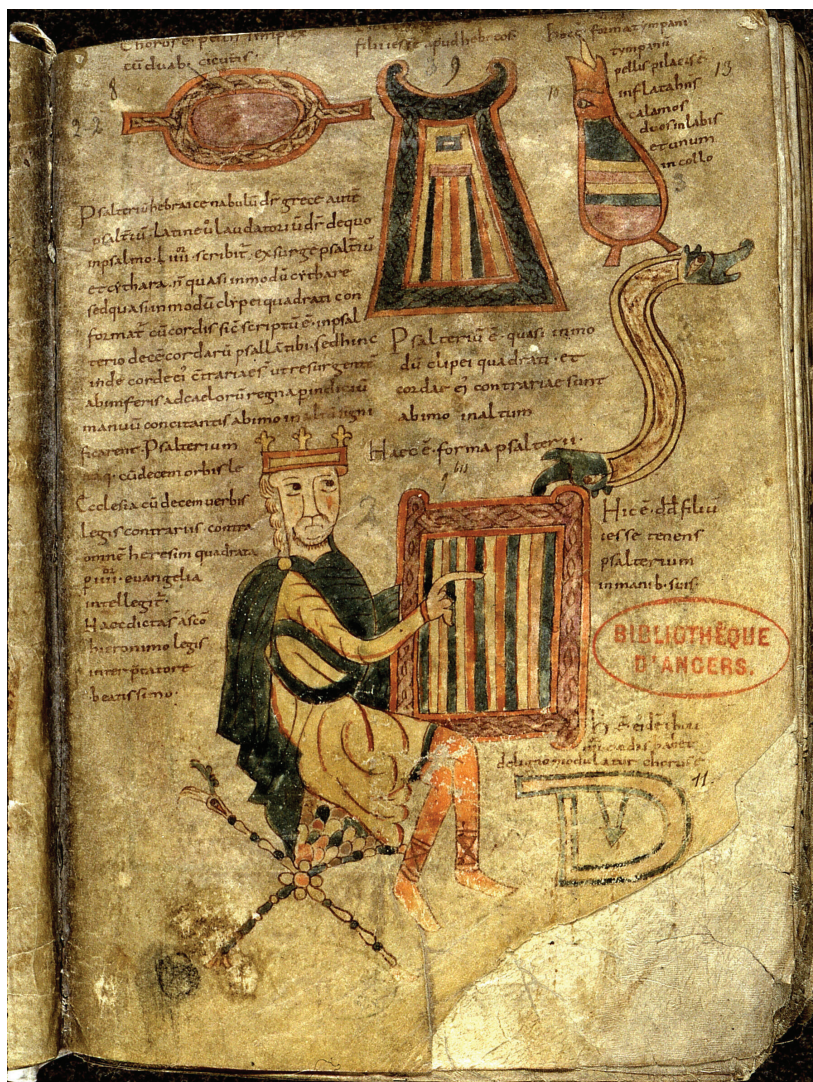 Choros e pellis simplex
cū duab· cicutis·
filii iesse apud hebreos
haec forma tympani
tympanū
pellis pilacis ē
inflatabilis
calamos
duos in labis
et unum
in collo
8
9
10
13
2-2
3
Psalteriū hebraice nabulū dr̄ grece autē
psalteriū· latine ū laudatoriū dr̄ de quo
in psalmo· L · scribit̄· exsurge psalteriū
et cythara· n̄ quasi in modū cythare
sed quasi in modū clypei quadrati con
format̄ cū cordis sic̄ scriptū ē· in psal
terio decē cordarū psallite tibi· sed hinc
inde corde ei c̄trariae s̄ ut resurgente
ab inferis ad caelorū regna p indiciū
manuū concitantis ab imo in altū signi
ficarent· Psalterium
itaq· cū decem orbis le
Ecclesia cū decem uerbis
legis contrariis contra
omnē heresim quadrata
p iiii· evangelia
intellegit̄·
Haec dicta s̄ a sc̄o
hieronimo legis
interp̄tatore
beatissimo·
Psalteriū ē· quasi in mo
dū clipei quadrati· et
cordae ei contrariae sunt
ab imo in altum
Haec ē· forma psalterii·
2
Hic ē· dd̄ filiū
iesse tenens
psalterium
in manib· suis·
BIBLIOTHÈQUE
D'ANGERS.
de ligno modulatur chorus ē
11